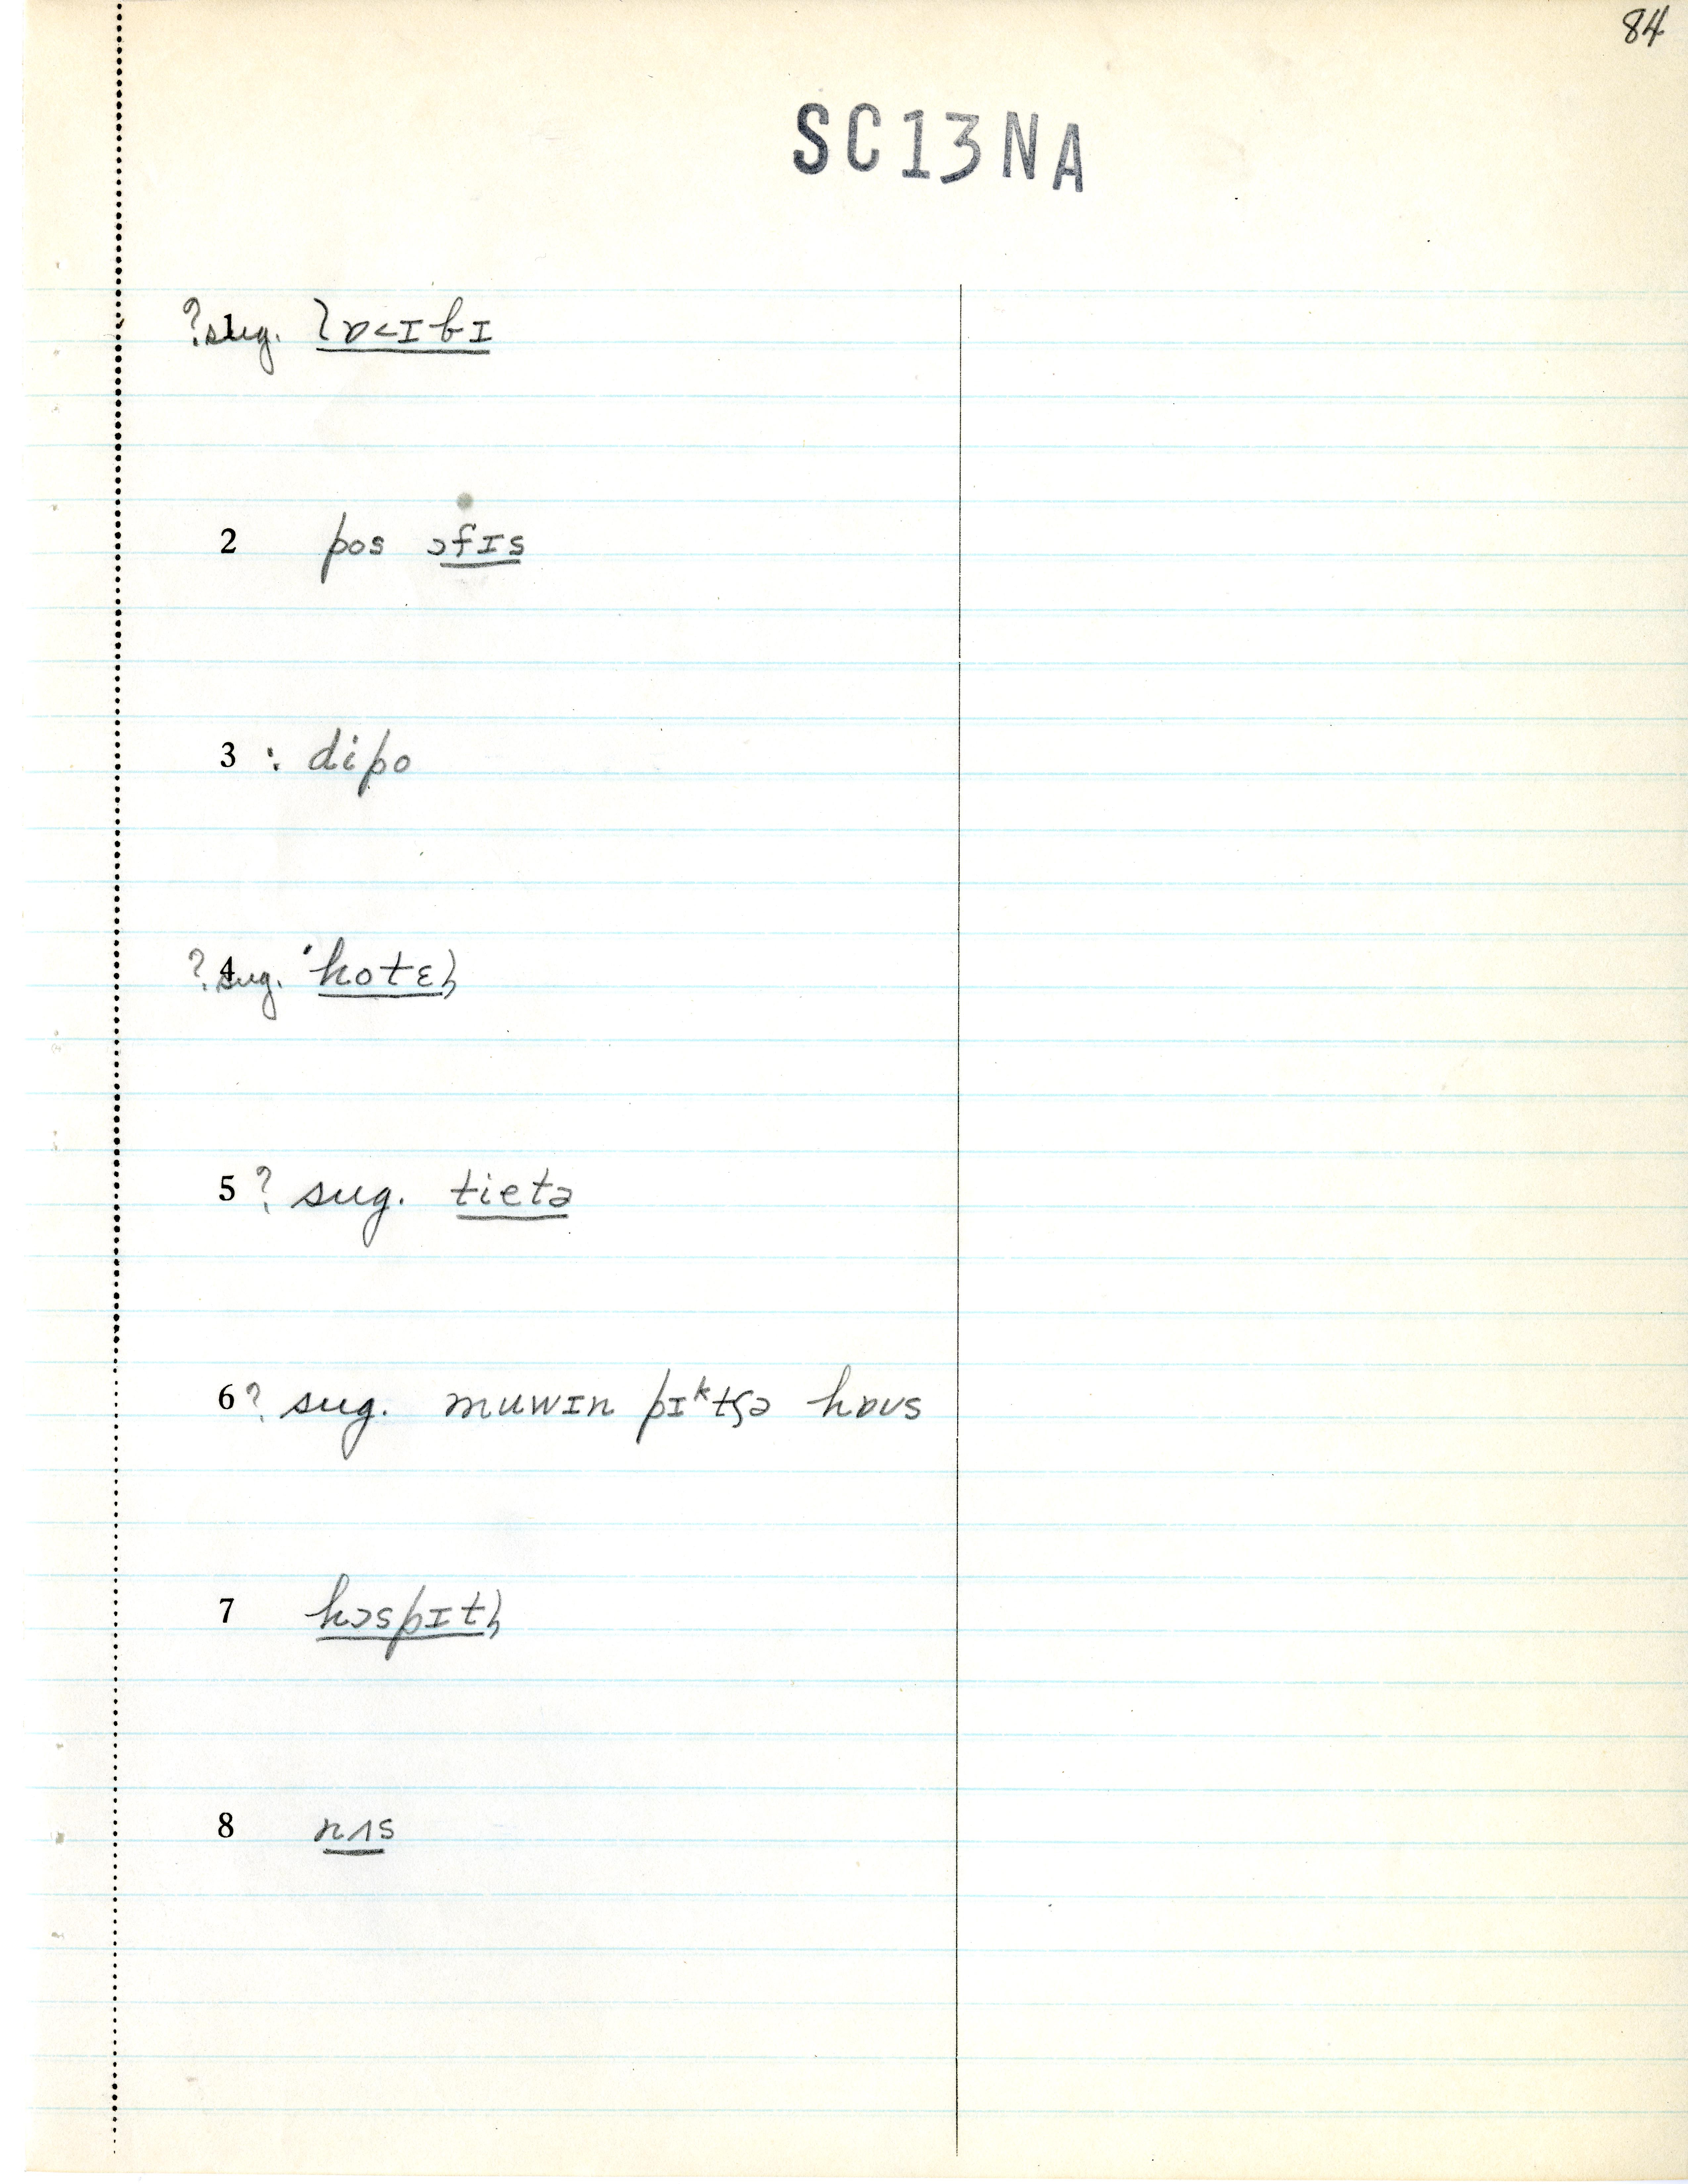 84
SC13NA
1 ?sug. lɒ<ɪbɪ
2 pos ɔfɪs
3 : dipo
4 ?sug. ˈhotɛl̩
5 ? sug. tietə
6 ? sug. muwɪn pɪᵏtʃə hɒʊs
7 hɔspɪtl̩
8 nʌs